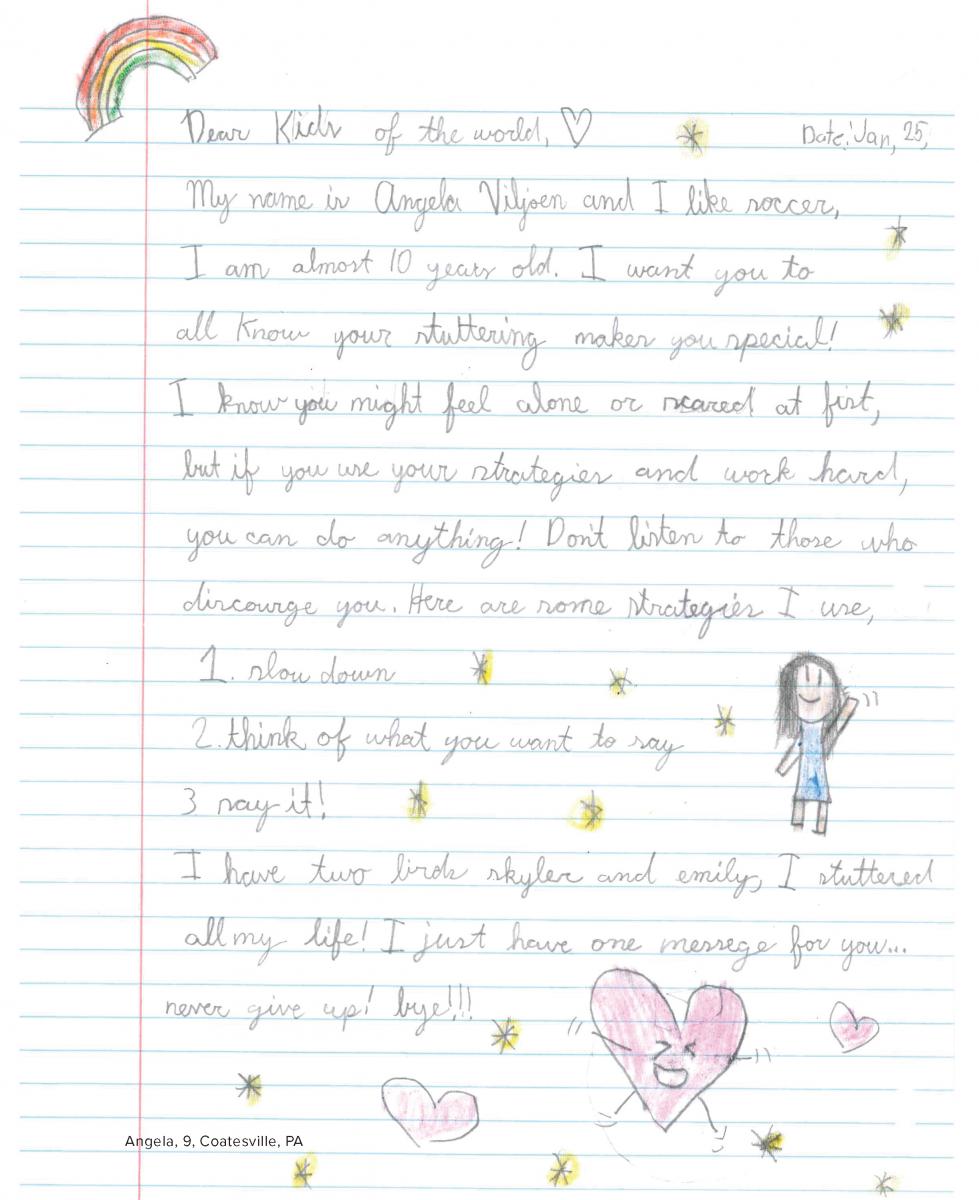 Dear Kids of the world, Date: Jan, 25,
My name is Angela Viljoen and I like soccer,
I am almost 10 years old. I want you to
all Know your stuttering makes you special!
I know you might feel alone or scared at fist,
but if you use your strategies and work hard,
you can do anything! Don't listen to those who
discourge you. Here are some strategies I use,
1. slow down
2. think of what you want to say
3 say it!
I have two birds skyler and emily, I stuttered
all my life! I just have one messege for you...
never give up! bye!!!
Angela, 9, Coatesville, PA